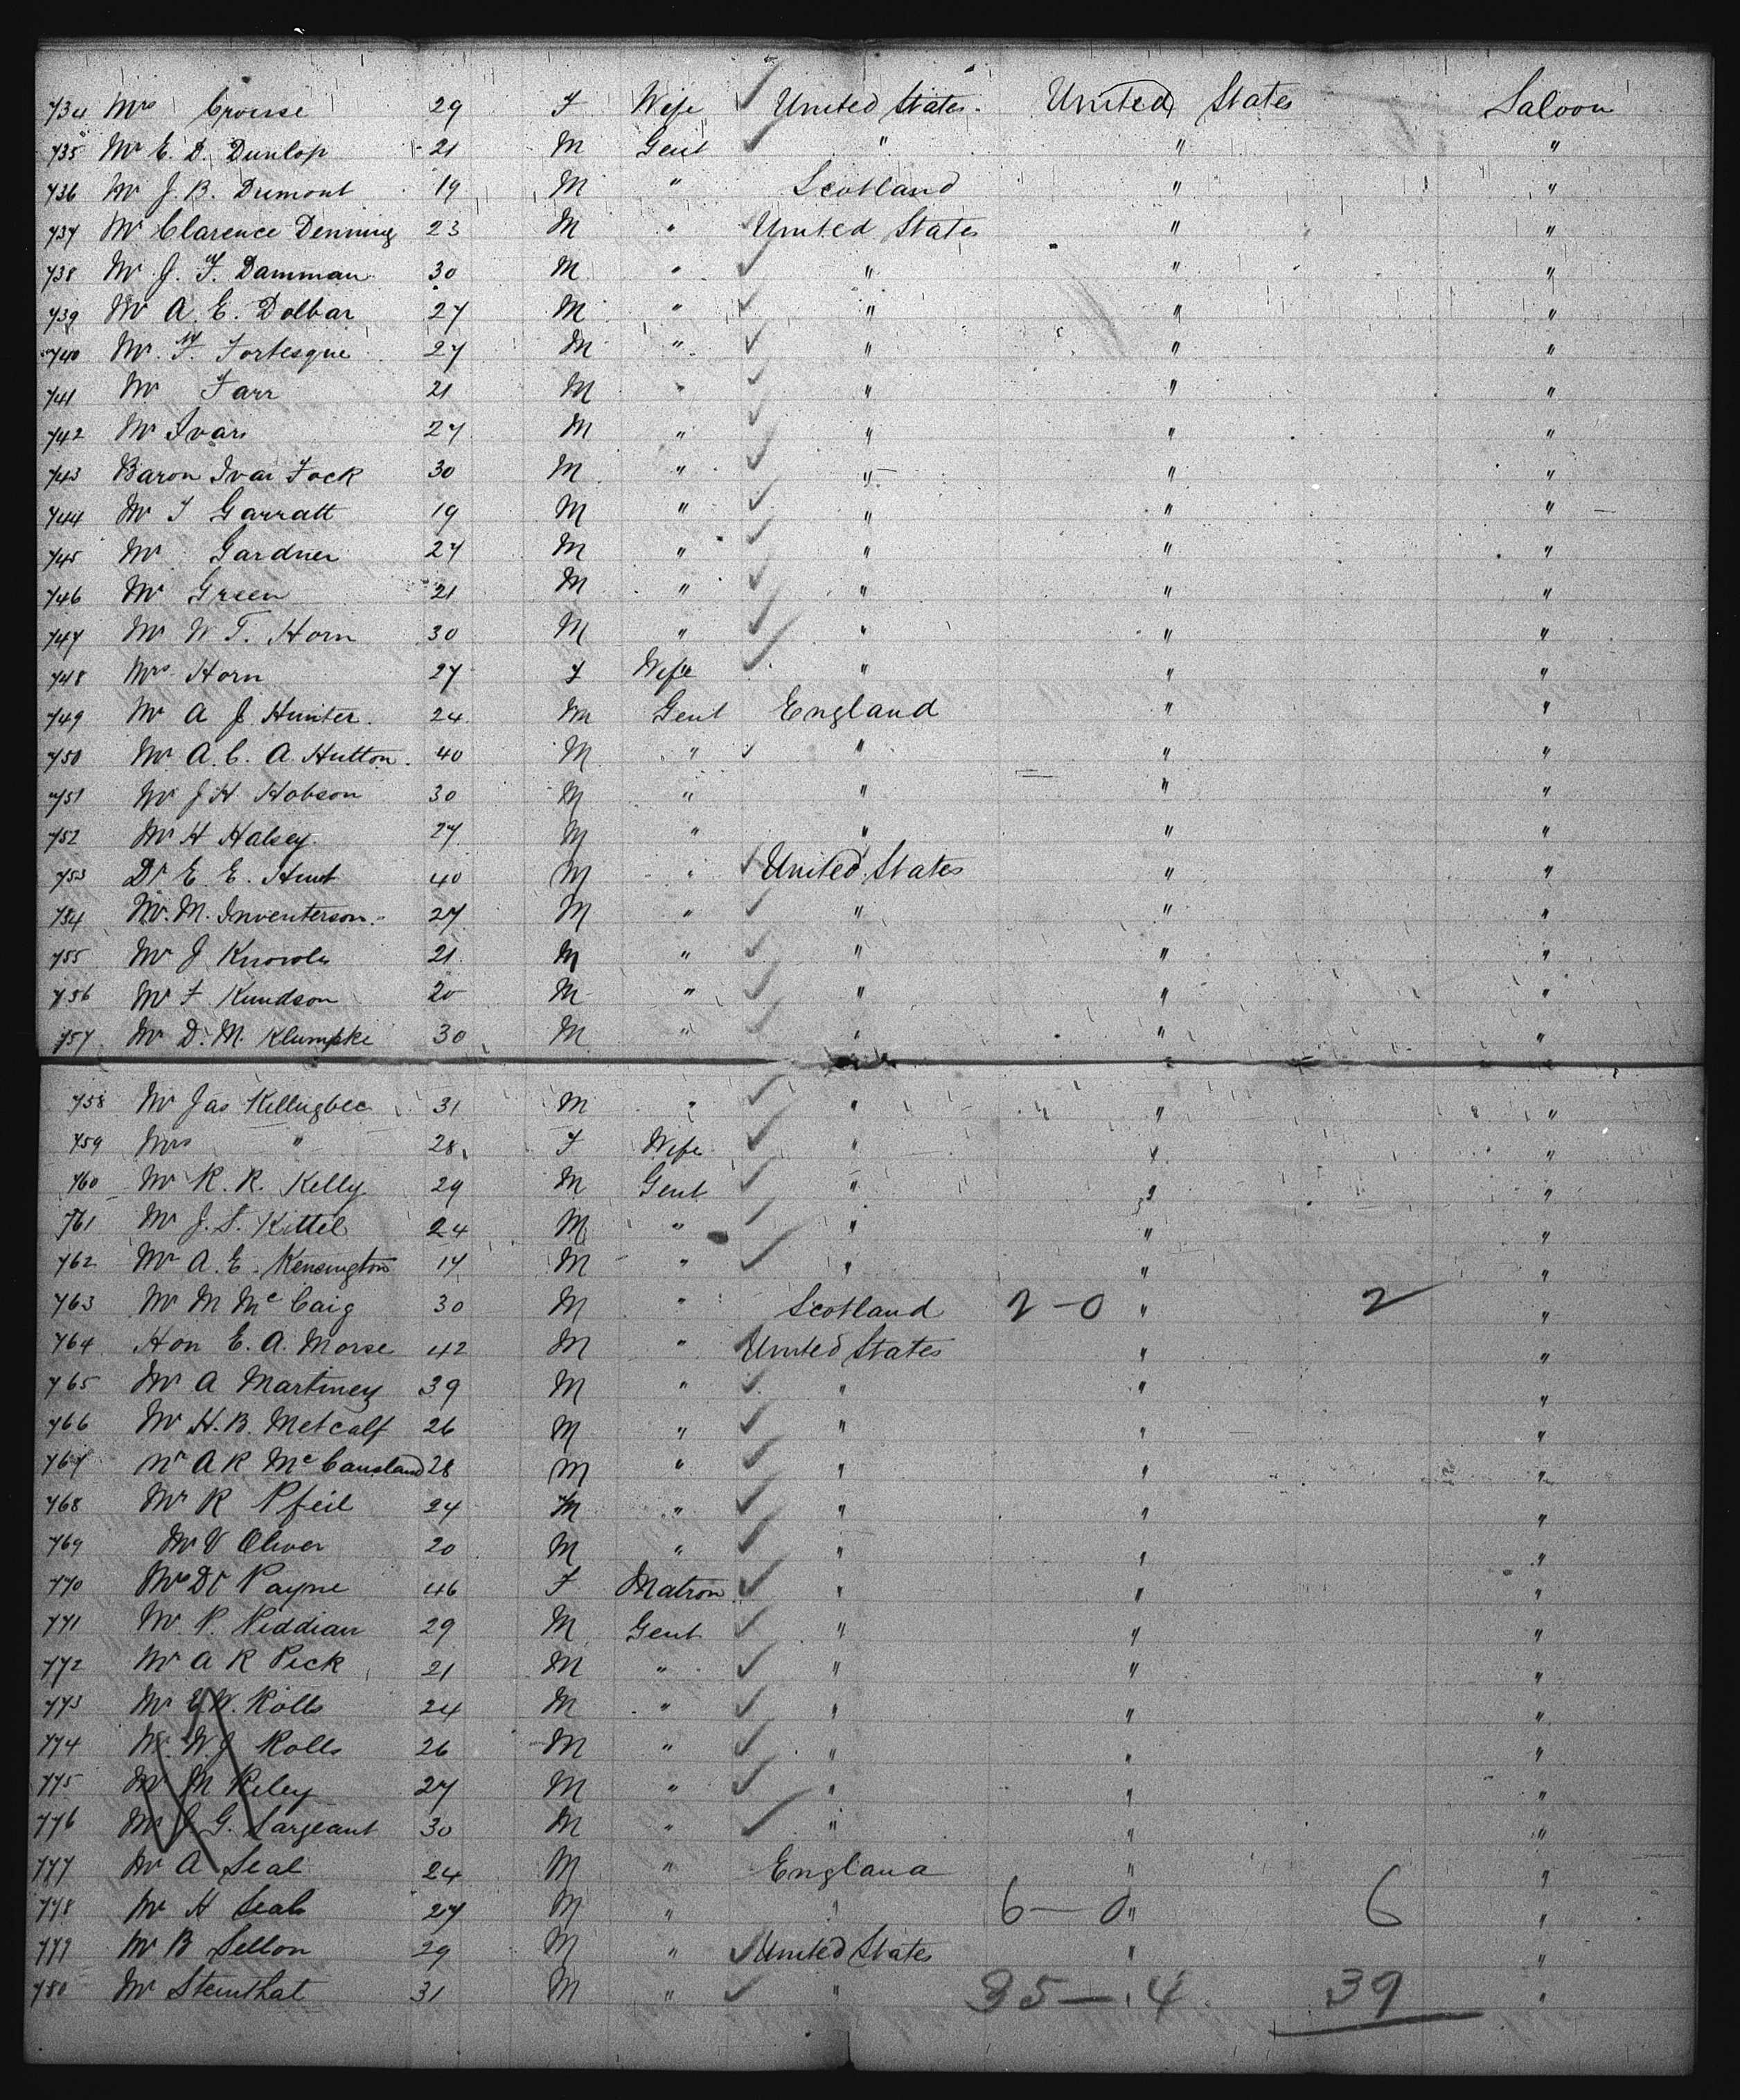 734 Mrs Crouse 29 F Wife ✓ United States. United States Saloon
735 Mr E. D. Dunlop 21 M Gent ✓ " " "
736 Mr J. B. Dumont 19 M " Scotland " "
737 Mr Clarence Denning 23 M " ✓ United States " "
738 Mr J. F. Damman 30 M " ✓ " " "
739 Mr A. E. Dolbar 27 M " ✓ " " "
740 Mr. F. Fortesque 27 M " ✓ " " "
741 Mr Farr 21 M " ✓ " " "
742 Mr Ivars 27 M " ✓ " " "
743 Baron Ivar Fock 30 M " ✓ " " "
744 Mr T Garratt 19 M " ✓ " " "
745 Mr Gardner 27 M " ✓ " " "
746 Mr Green 21 M " ✓ " " "
747 Mr W T. Horn 30 M " ✓ " " "
748 Mrs Horn 27 F Wife ✓ " " "
749 Mr A J Hunter. 24 M Gent England " "
750 Mr A. C. A. Hutton. 40 M " ✓ " " "
751 Mr J H Hobson 30 M " " " "
752 Mr H Halsey. 27 M " " " "
753 Dr E. E. Hunt 40 M " ✓ United States " "
754 Mr. M. Inventerson. 27 M " ✓ " " "
755 Mr J Knowles 21 M " ✓ " " "
756 Mr F Kundson 20 M " ✓ " " "
757 Mr D. M. Klumpke 30 M " ✓ " " "
758 Mr Jas 31 M " ✓ " " "
759 Mrs " 28 F Wife ✓ " " "
760 Mr R. R. Kelly 29 M Gent ✓ " " "
761 Mr J. S. Kittel 24 M " ✓ " " "
762 Mr A. E. Kensington 17 M " ✓ " " "
763 Mr M Mc Caig 30 M " Scotland 2-0 " 2 "
764 Hon E. A. Morse 42 M " ✓ United States " "
765 Mr A Martiney 39 M " ✓ " " "
766 Mr H. B. Metcalf 26 M " ✓ " " "
767 Mr A R Mc Causland 28 M " ✓ " " "
768 Mr R Pfeil 24 M " ✓ " " "
769 Mr V Oliver 20 M " ✓ " " "
770 Mrs Dr Payne 46 F Matron ✓ " " "
771 Mr P. Piddian 29 M Gent ✓ " " "
772 Mr A R Pick 21 M " ✓ " " "
773 Mr E W. Rolls 24 M " ✓ " " "
774 Mr. W. J Rolls 26 M " ✓ " " "
775 Mr M Riley 27 M " ✓ " " "
776 Mr J G. Sargeant 30 M " ✓ " " "
777 Mr A Seal 24 M " England " "
778 Mr H Seals 27 M " " 6-0 " 6 "
779 Mr B Sellon 29 M " ✓ United States " "
780 Mr Steinthal 31 M " ✓ " 35-4 39 "